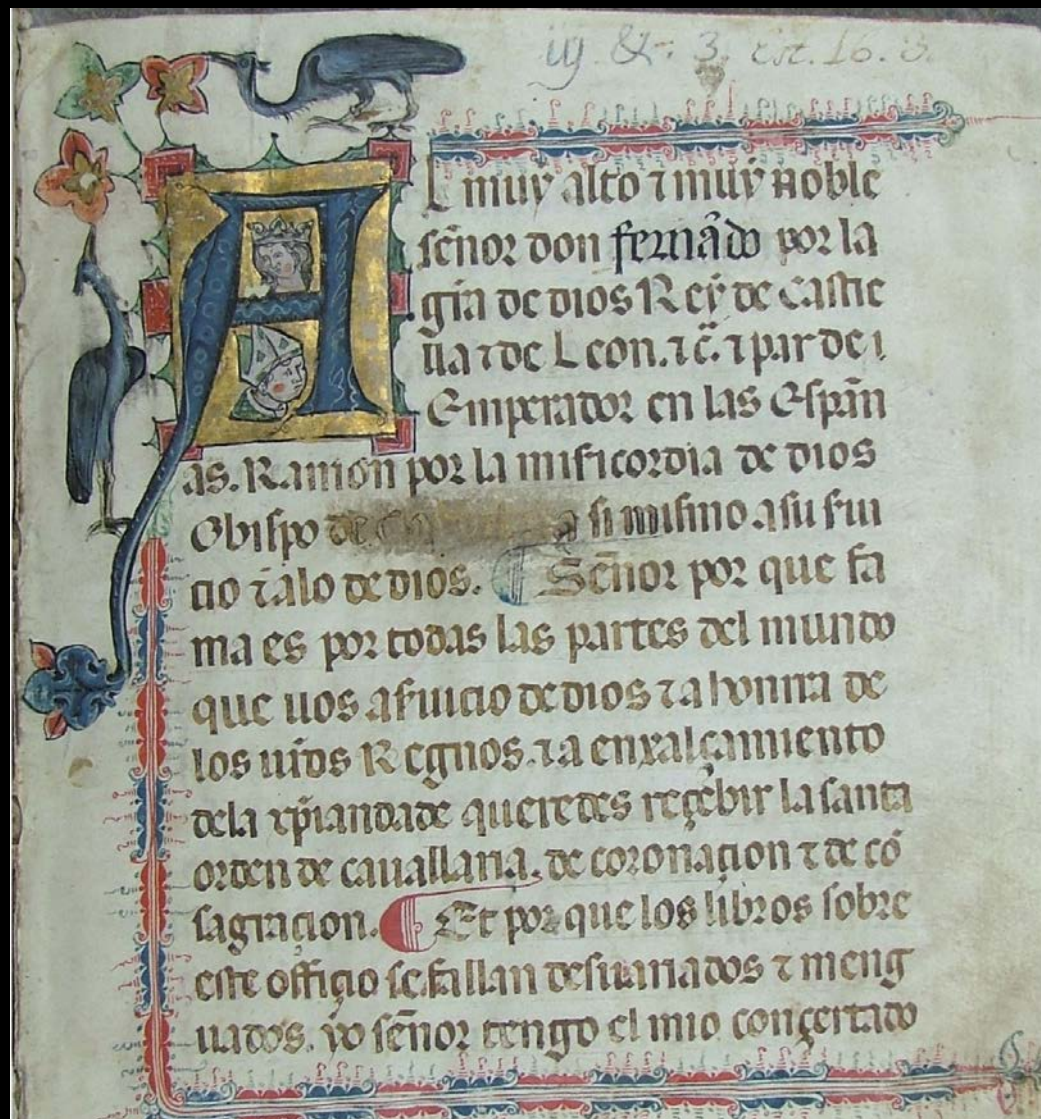 iij. &. 3. est. 16. 8.
AL muy alto ⁊ muy noble
señor don fernãdo por la
gr̃a de dios Rey de Castie
lla ⁊ de Leon. ⁊ c̃. ⁊ par de
Emperador en las Españ
as. Ramon por la mis̃icordia de dios
Obispo de a si mismo a su s̃ui
cio ⁊ alo de dios. Señor por que fa
ma es por todas las partes del mundo
que uos a s̃uicio de dios ⁊ a honrra de
los ur̃os Regnos. ⁊ a enxalçamiento
dela xp̃iandade queredes reçebir la santa
orden de cauallaria. de coronaçion ⁊ de cõ
sagraçion. Et por que los libros sobre
este offiçio se fallan desuariados ⁊ meng
uados. yo señor tengo el mio conçertado